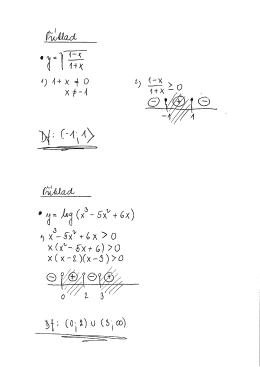 Příklad
• y = √((1-x)/(1+x))
1) 1+x ≠ 0
x ≠ -1
2) (1-x)/(1+x) ≥ 0
⊖ ⊕ ⊖
-1 1
Df: (-1; 1⟩
Příklad
• y = log (x³ - 5x² + 6x)
1) x³ - 5x² + 6x > 0
x (x² - 5x + 6) > 0
x (x - 2)(x - 3) > 0
⊖ ⊕ ⊖ ⊕
0 2 3
Df: (0; 2) ∪ (3, ∞)